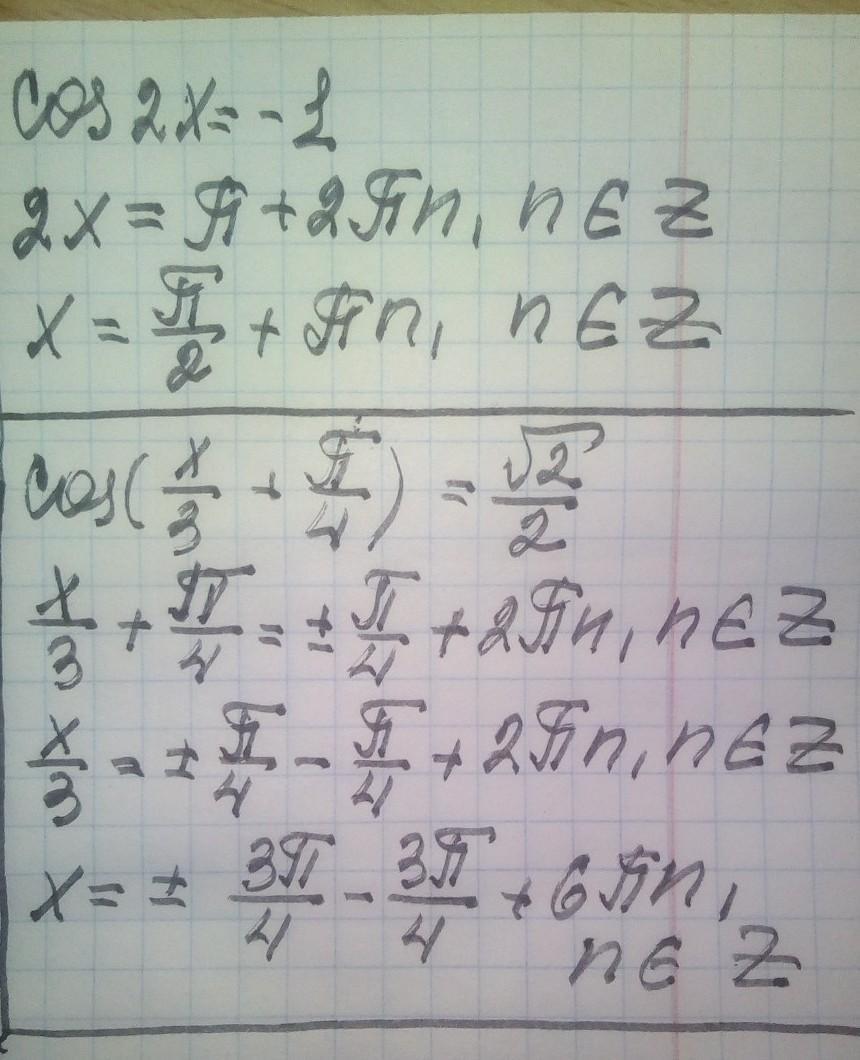 cos 2x = -1
2x = π + 2πn, n ∈ Z
x = π/2 + πn, n ∈ Z
cos(x/3 + π/4) = √2/2
x/3 + π/4 = ± π/4 + 2πn, n ∈ Z
x/3 = ± π/4 - π/4 + 2πn, n ∈ Z
x = ± 3π/4 - 3π/4 + 6πn,
n ∈ Z